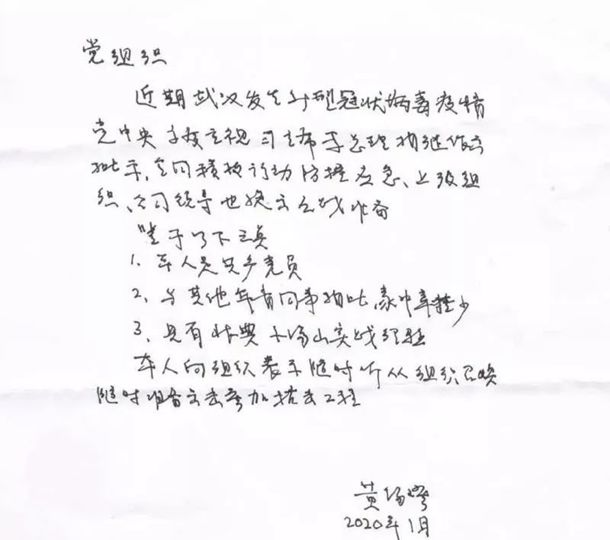 党组织
近期武汉发生新型冠状病毒疫情
党中央高度重视 习主席李总理相继作出
批示,全国积极行动防控应急、上级组
织、公司领导也作出应战准备
鉴于以下三点
1. 本人是共产党员
2. 与其他年青同事相比,家中牵挂少
3. 具有非典小汤山实战经验
本人向组织表示随时听从组织召唤
随时准备出击参加抗击工程
黄
2020年1月